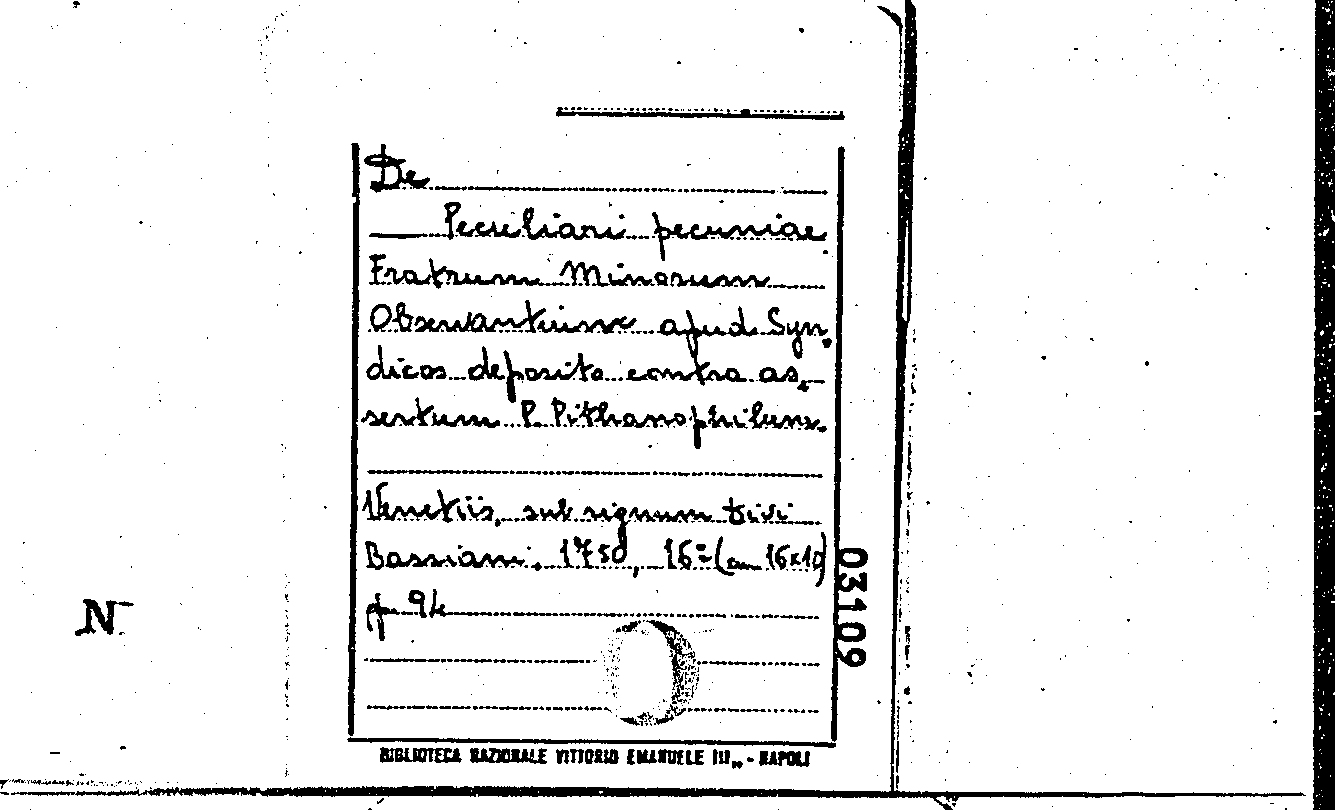 De
Peculiari pecuniae
Fratrum Minorum
Observantium apud Syn-
dicos deposita contra as-
sertum P. Pithanophilum.
Venetiis, sub signum Divi
Bassiani. 1750, 16º (cm 16x10)
pp. 94
N
03109
BIBLIOTECA NAZIONALE VITTORIO EMANUELE III„ - NAPOLI